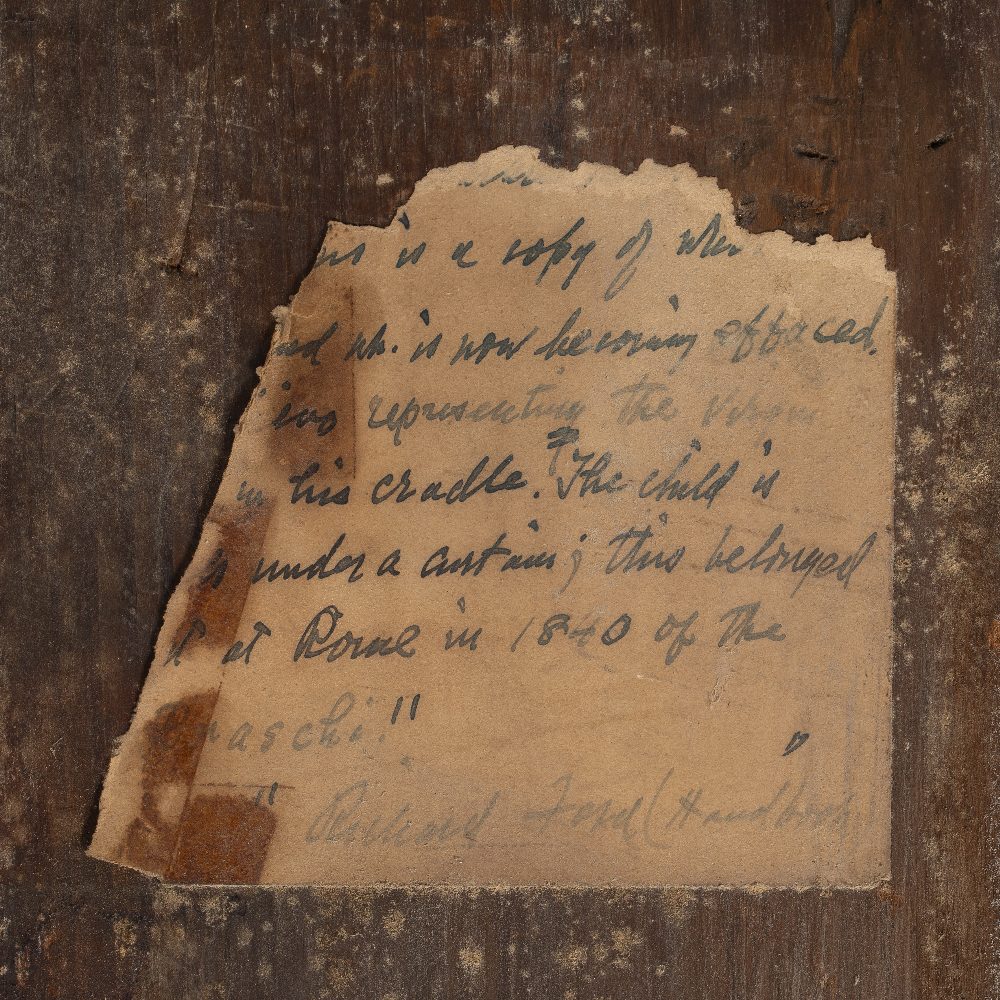 is a copy of
wh. is now becoming effaced.
representing the Virgin
in his cradle. The child is
under a curtain; this belonged
at Rome in 1840 of the
aschi!"
" Richard Ford (Handbook